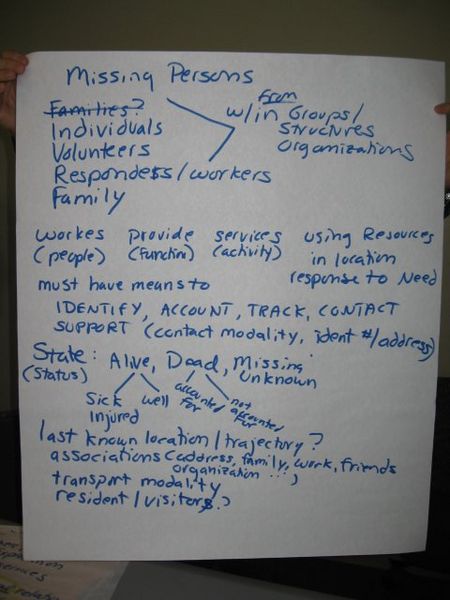 Missing Persons
Families?
Individuals
Volunteers
Responders/workers
Family
from
w/in Groups/
Structures
Organizations
workes provide services using Resources
(people) (function) (activity) in location
response to Need
must have means to
IDENTIFY, ACCOUNT, TRACK, CONTACT
SUPPORT (contact modality, ident #/address)
State: Alive, Dead, Missing
(Status) Unknown
Sick well accounted for not accounted for
Injured
last known location/trajectory?
associations (address, family, work, friends
organization ...)
transport modality
resident/visitors?